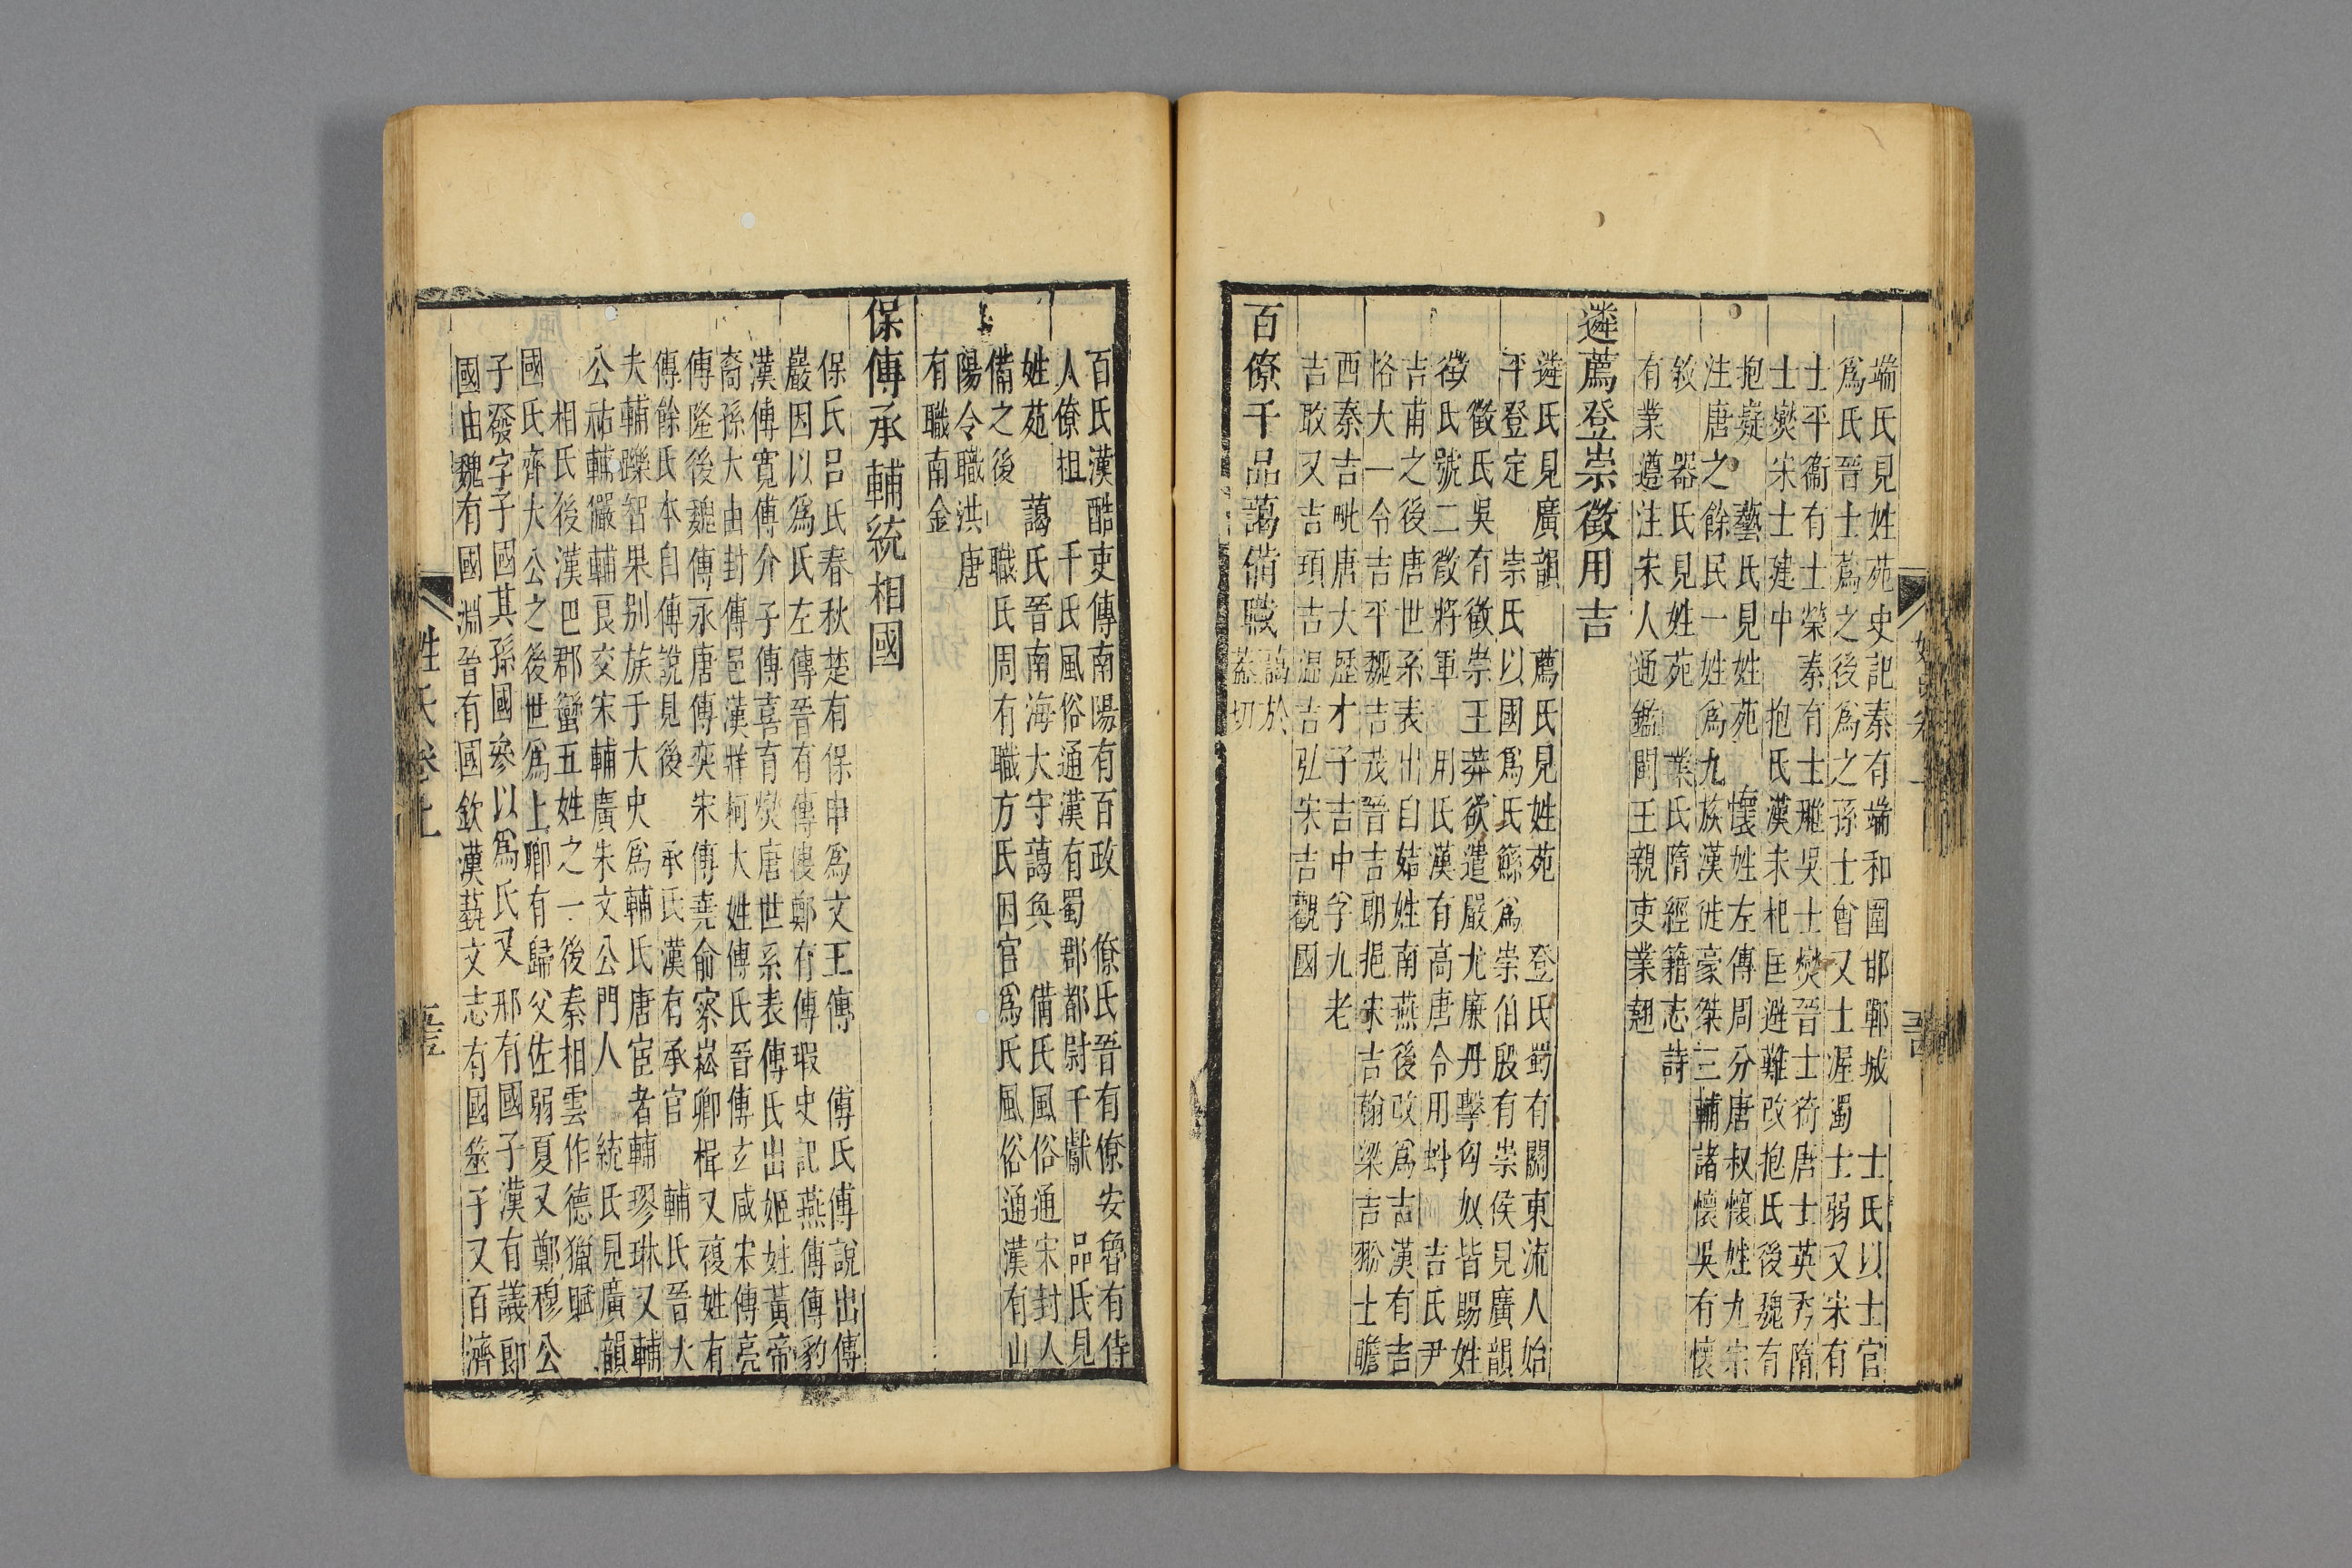 端氏見姓苑史記秦有端和圍邯鄲城　士氏以士官
爲氏晉士蔿之後爲之孫士會又士渥濁士弱又宋有
士平衞有士榮秦有士㒹吳士燮晉士猗唐士英秀隋
士燮宋士建中　抱氏漢末杞匡避難改抱氏後魏有
抱嶷　藝氏見姓苑　懷姓左傳周分唐叔懷姓九宗
注唐之餘民一姓爲九族漢徙豪桀三輔諸懷吳有懷
敘　器氏見姓苑　業氏隋經籍志詩
有業遵注宋人通鑑閩王親吏業翹
遴薦登崇徵用吉
遴氏見廣韻　薦氏見姓苑　登氏蜀有關東流人始
平登定　崇氏以國爲氏鯀爲崇伯殷有崇侯見廣韻
徵氏吳有徵崇王莽欲遣嚴尤廉丹擊匈奴皆賜姓
徵氏號二徵將軍　用氏漢有高唐令用蚪　吉氏尹
吉甫之後唐世系表出自姞姓南燕後改爲吉漢有吉
恪大一令吉平魏吉茂晉吉朗挹宋吉翰梁吉翂士瞻
西秦吉毗唐大歷才子吉中孚九老
吉旼又吉頊吉溫吉弘宋吉觀國
百僚千品藹備職藹於蓋切
百氏漢酷吏傳南陽有百政　僚氏晉有僚安魯有侍
人僚柤　千氏風俗通漢有蜀郡都尉千獻　品氏見
姓苑　藹氏晉南海大守藹奐　備氏風俗通宋封人
備之後　職氏周有職方氏因官爲氏風俗通漢有山
陽令職洪唐
有職南金
保傅承輔統相國
保氏呂氏春秋楚有保申爲文王傅　傅氏傅說出傅
嚴因以爲氏左傳晉有傅傁鄭有傅瑕史記燕傅傅豹
漢傅寛傅介子傅喜育燮唐世系表傅氏出姬姓黃帝
裔孫大由封傅邑漢牂柯大姓傅氏晉傅玄咸宋傅亮
傅隆後魏傅永唐傅奕宋傅堯俞察崧卿楫又複姓有
傅餘氏本自傅說見後　承氏漢有承宮　輔氏晉大
夫輔躒智果别族于大史爲輔氏唐宦者輔璆琳又輔
公祏輔儼輔艮交宋輔廣朱文公門人　統氏見廣韻
相氏後漢巴郡蠻五姓之一後秦相雲作德獵賦
國氏齊大公之後世爲上卿有歸父佐弱夏又鄭穆公
子發字子國其孫國參以爲氏又邢有國子漢有議郎
國由魏有國淵晉有國欽漢藝文志有國筮子又百濟
姓氏卷上